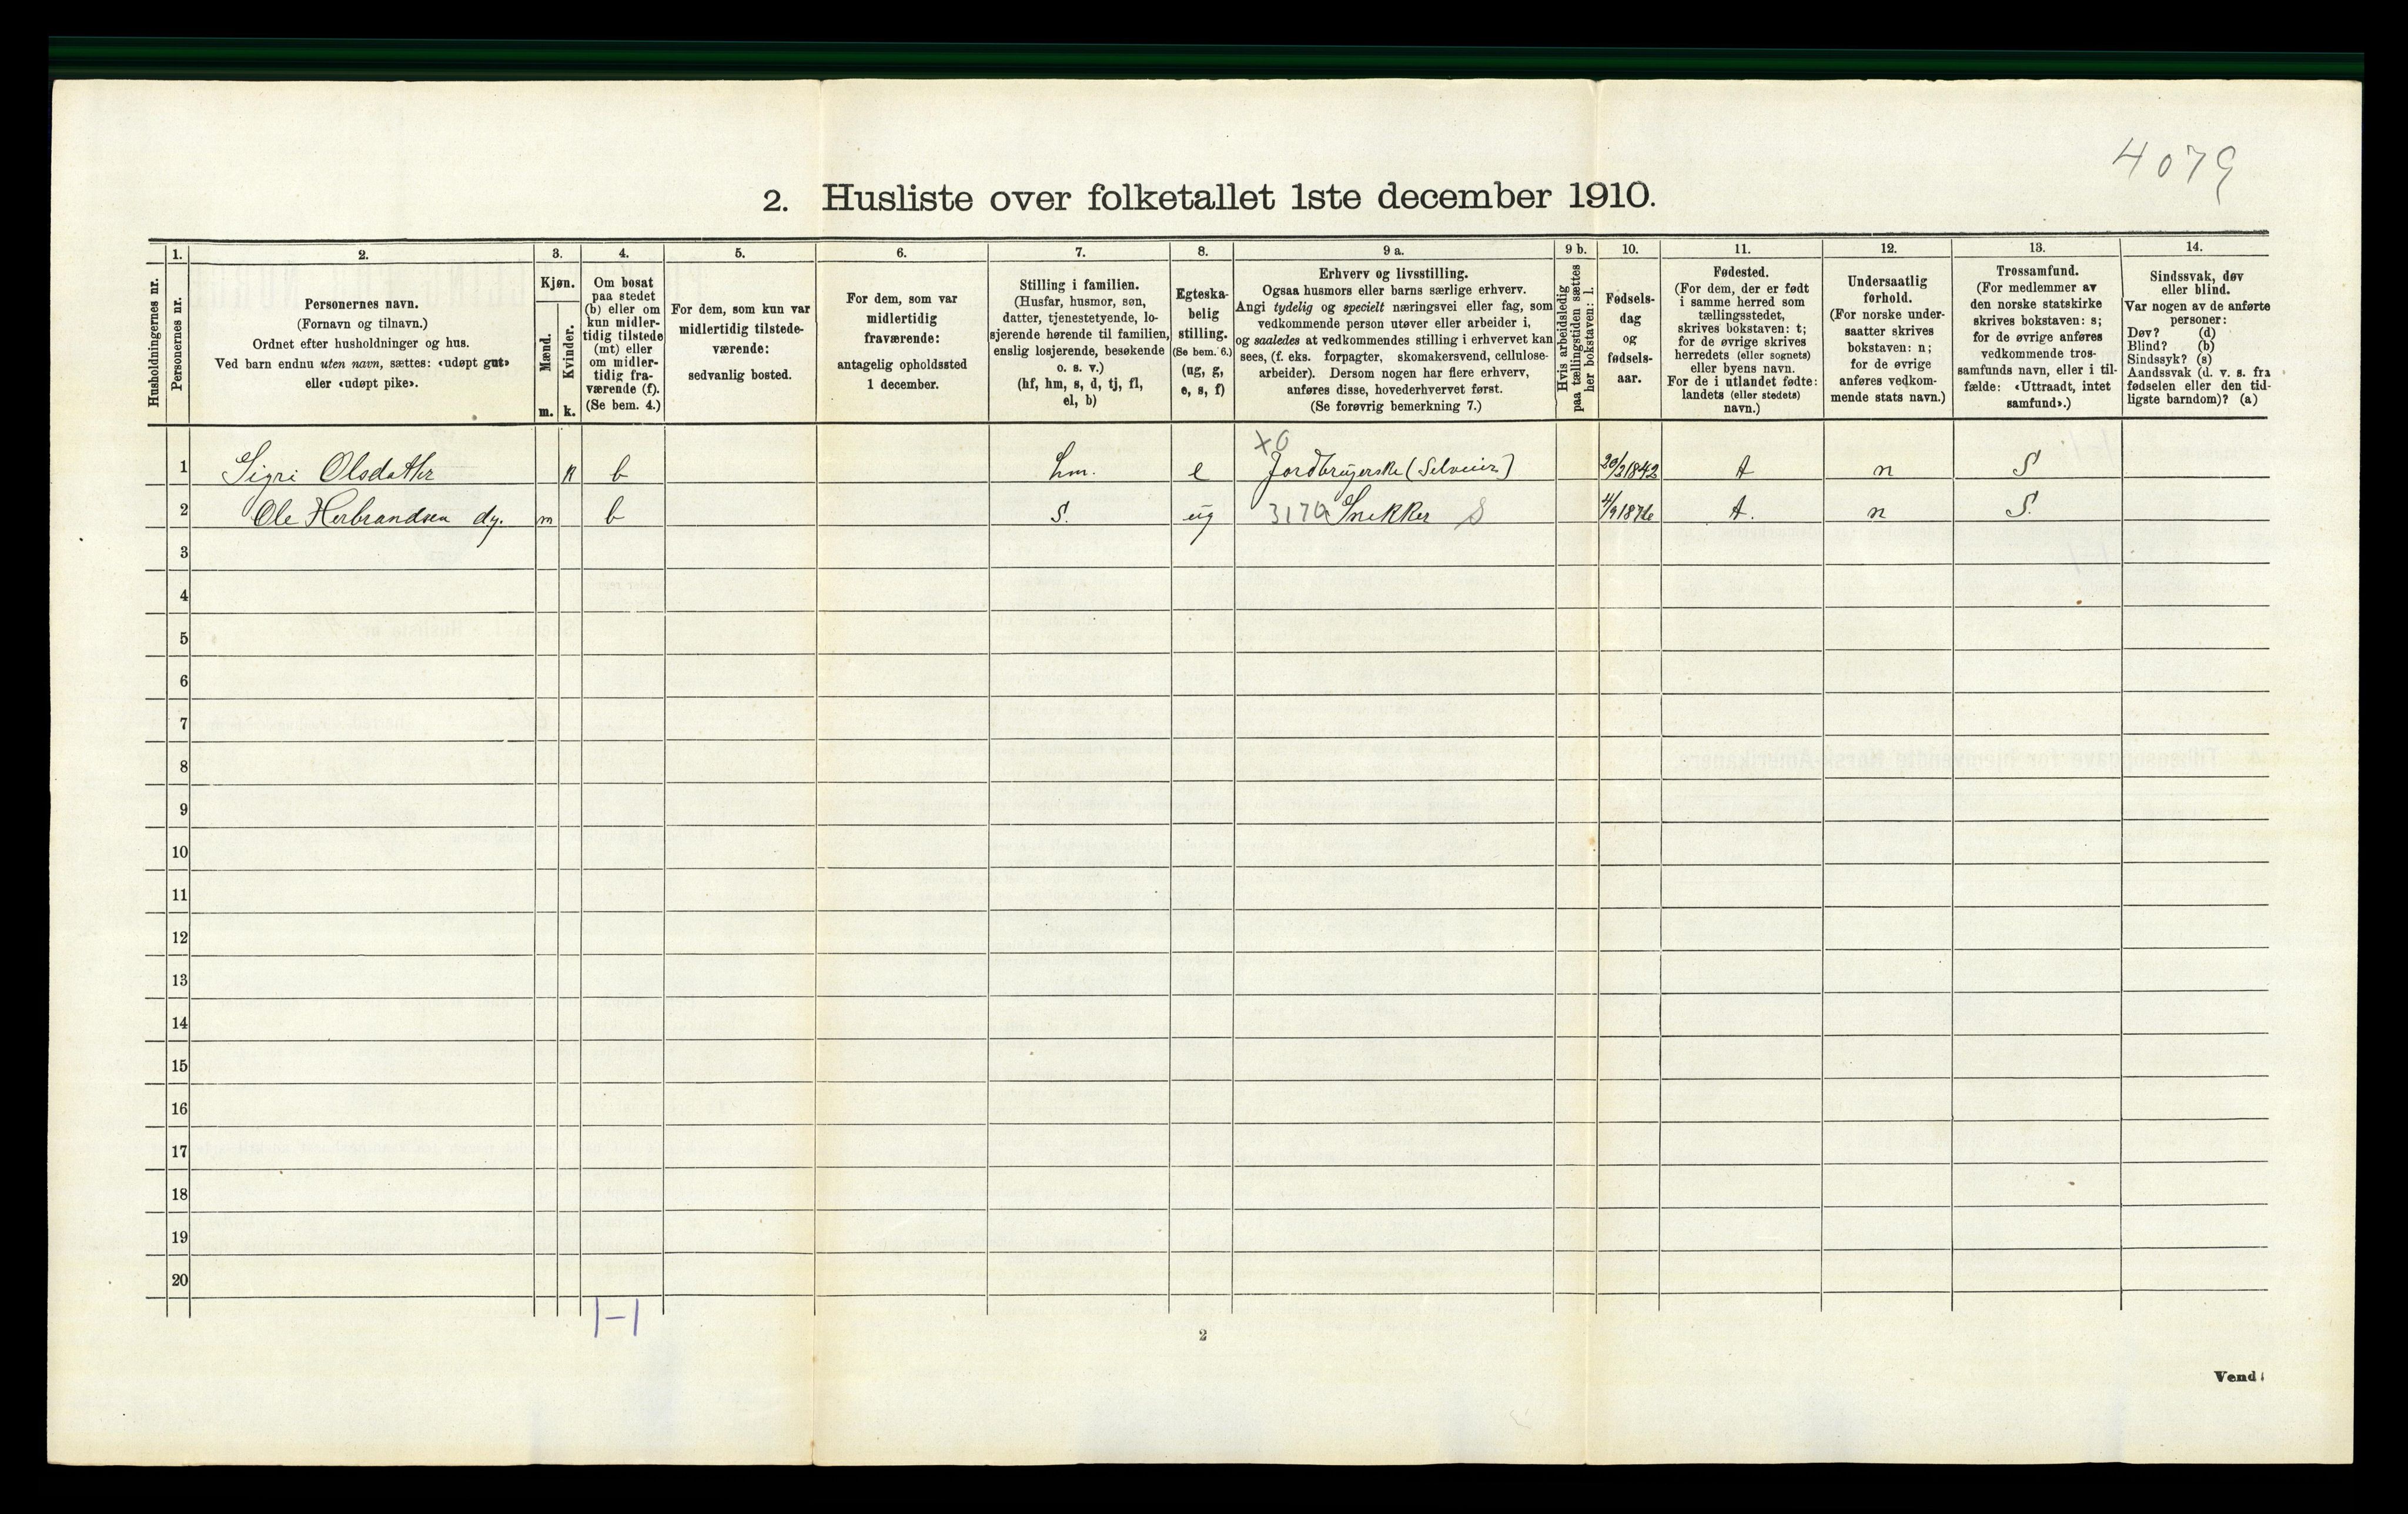 4079
2. Husliste over folketallet 1ste december 1910.
Husholdningernes nr.
1.
Personernes nr.
2.
Personernes navn.
(Fornavn og tilnavn.)
Ordnet efter husholdninger og hus.
Ved barn endnu uten navn, sættes: «udøpt gut»
eller «udøpt pike».
3.
Kjøn.
Mænd.
Kvinder.
m. k.
4.
Om bosat
paa stedet
(b) eller om
kun midler-
tidig tilstede
(mt) eller
om midler-
tidig fra-
værende (f).
(Se bem. 4.)
5.
For dem, som kun var
midlertidig tilstede-
værende:
sedvanlig bosted.
6.
For dem, som var
midlertidig
fraværende:
antagelig opholdssted
1 december.
7.
Stilling i familien.
(Husfar, husmor, søn,
datter, tjenestetyende, lo-
sjerende hørende til familien,
enslig losjerende, besøkende
o. s. v.)
(hf, hm, s, d, tj, fl,
el, b)
8.
Egteska-
belig
stilling.
(Se bem. 6.)
(ug, g,
e, s, f)
9 a.
Erhverv og livsstilling.
Ogsaa husmors eller barns særlige erhverv.
Angi tydelig og specielt næringsvei eller fag, som
vedkommende person utøver eller arbeider i,
og saaledes at vedkommendes stilling i erhvervet kan
sees, (f. eks. forpagter, skomakersvend, cellulose-
arbeider). Dersom nogen har flere erhverv,
anføres disse, hovederhvervet først.
(Se forøvrig bemerkning 7.)
9 b.
Hvis arbeidsledig
paa tællingstiden sættes
her bokstaven: l.
10.
Fødsels-
dag
og
fødsels-
aar.
11.
Fødested.
(For dem, der er født
i samme herred som
tællingsstedet,
skrives bokstaven: t;
for de øvrige skrives
herredets (eller sognets)
eller byens navn.
For de i utlandet fødte:
landets (eller stedets)
navn.)
12.
Undersaatlig
forhold.
(For norske under-
saatter skrives
bokstaven: n;
for de øvrige
anføres vedkom-
mende stats navn.)
13.
Trossamfund.
(For medlemmer av
den norske statskirke
skrives bokstaven: s;
for de øvrige anføres
vedkommende tros-
samfunds navn, eller i til-
fælde: «Uttraadt, intet
samfund».)
14.
Sindssvak, døv
eller blind.
Var nogen av de anførte
personer:
Døv? (d)
Blind? (b)
Sindssyk? (s)
Aandssvak (d. v. s. fra
fødselen eller den tid-
ligste barndom)? (a)
XO
1 Sigri Olsdatter k b hm. e Jordbrugerske (Selveier) 20/2 1842 t n S
2 Ole Herbrandsen dy. m b S. ug 3170 Snekker S 4/9 1876 t. n S.
3
4
5
6
7
8
9
10
11
12
13
14
15
16
17
18
19
20
1-1
2
Vend!